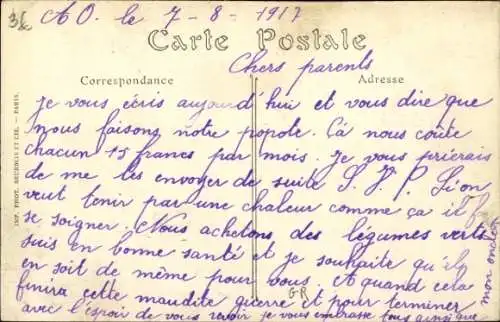 36
A O. le 7 - 8 - 1917
Carte Postale
Chers parents
Correspondance
Adresse
Je vous écris aujourd'hui et vous dire que
nous faisons notre popote. Ça nous coûte
chacun 15 francs par mois. Je vous prierais
de me les envoyer de suite S. V. P. Si on
veut tenir par une chaleur comme ça il f
se soigner. Nous achetons des légumes verts
suis en bonne santé et je souhaite qu'il
en soit de même pour vous. et quand cela
finira cette maudite guerre et pour terminer
avec l'espoir de vous revoir je vous embrasse tous ainsi que
mon oncle
GR
IMP. PHOT. ET CIE. — PARIS.